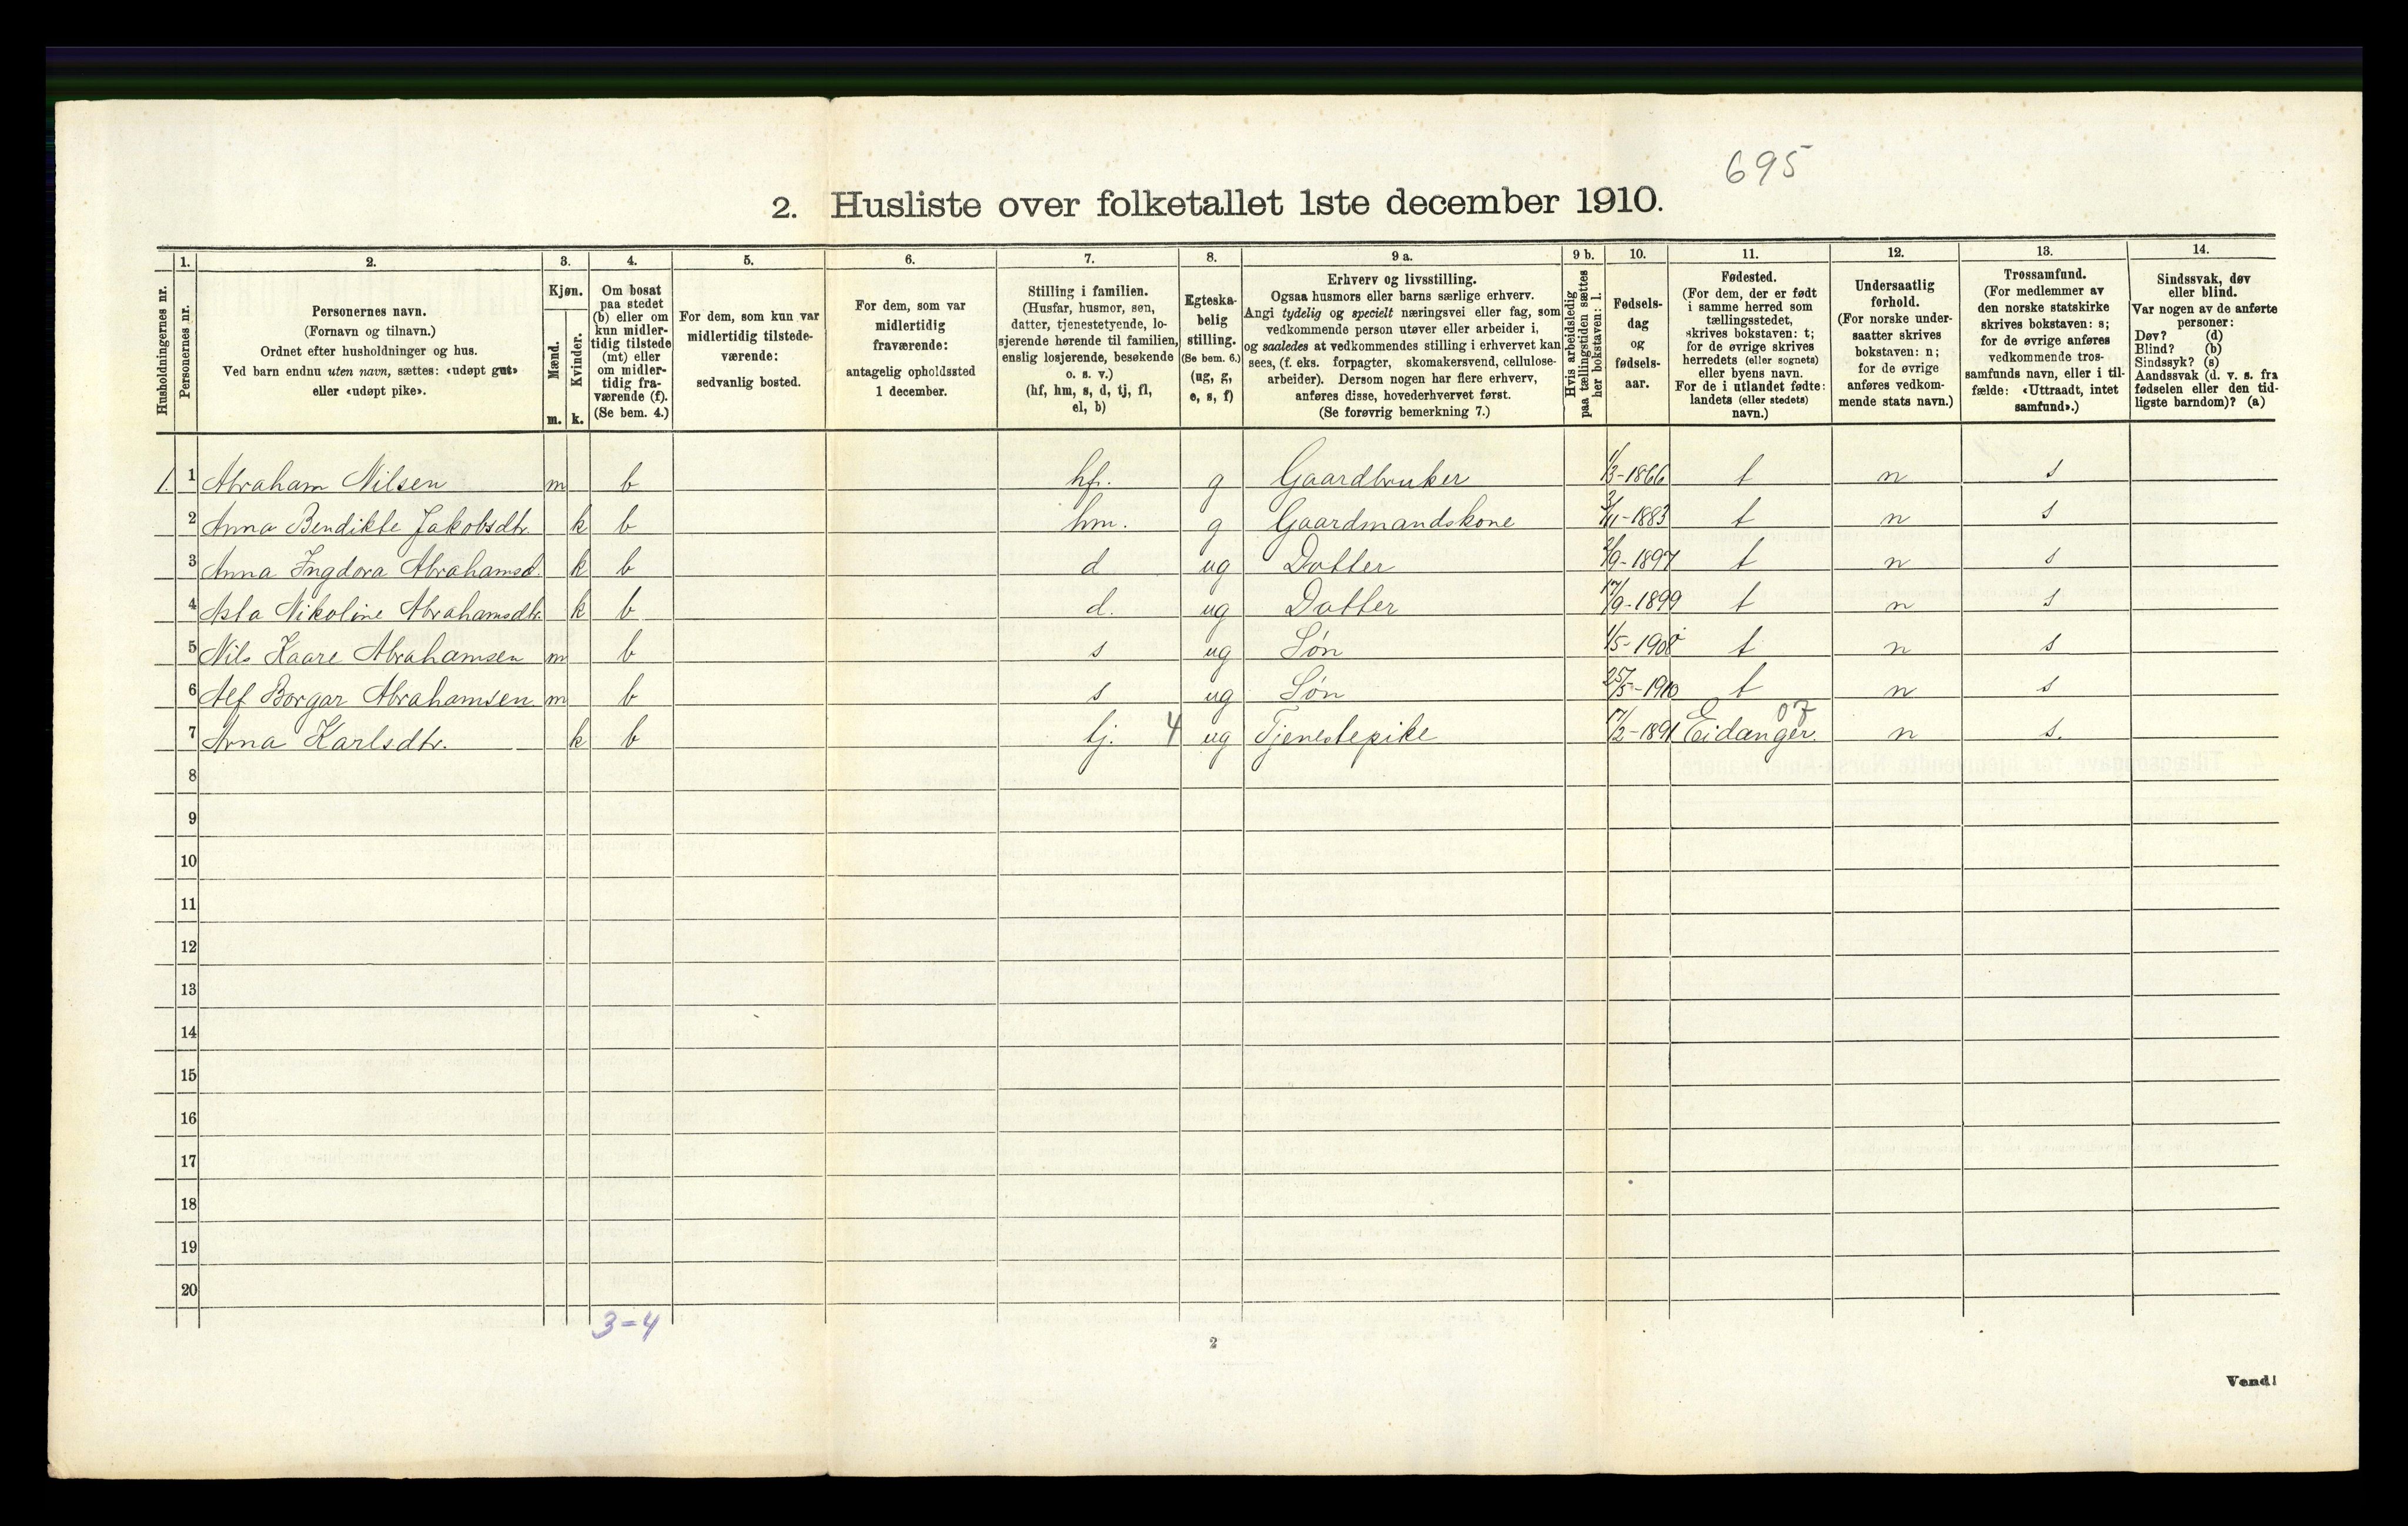 695
2. Husliste over folketallet 1ste december 1910.
Husholdningernes nr.
1.
Personernes nr.
2.
Personernes navn.
(Fornavn og tilnavn.)
Ordnet efter husholdninger og hus.
Ved barn endnu uten navn, sættes: «udøpt gut»
eller «udøpt pike».
3.
Kjøn.
Mænd.
Kvinder.
m. k.
4.
Om bosat
paa stedet
(b) eller om
kun midler-
tidig tilstede
(mt) eller
om midler-
tidig fra-
værende (f).
(Se bem. 4.)
5.
For dem, som kun var
midlertidig tilstede-
værende:
sedvanlig bosted.
6.
For dem, som var
midlertidig
fraværende:
antagelig opholdssted
1 december.
7.
Stilling i familien.
(Husfar, husmor, søn,
datter, tjenestetyende, lo-
sjerende hørende til familien,
enslig losjerende, besøkende
o. s. v.)
(hf, hm, s, d, tj, fl,
el, b)
8.
Egteska-
belig
stilling.
(Se bem. 6.)
(ug, g,
e, s, f)
9 a.
Erhverv og livsstilling.
Ogsaa husmors eller barns særlige erhverv.
Angi tydelig og specielt næringsvei eller fag, som
vedkommende person utøver eller arbeider i,
og saaledes at vedkommendes stilling i erhvervet kan
sees, (f. eks. forpagter, skomakersvend, cellulose-
arbeider). Dersom nogen har flere erhverv,
anføres disse, hovederhvervet først.
(Se forøvrig bemerkning 7.)
9 b.
Hvis arbeidsledig
paa tællingstiden sættes
her bokstaven: l.
10.
Fødsels-
dag
og
fødsels-
aar.
11.
Fødested.
(For dem, der er født
i samme herred som
tællingsstedet,
skrives bokstaven: t;
for de øvrige skrives
herredets (eller sognets)
eller byens navn.
For de i utlandet fødte:
landets (eller stedets)
navn.)
12.
Undersaatlig
forhold.
(For norske under-
saatter skrives
bokstaven: n;
for de øvrige
anføres vedkom-
mende stats navn.)
13.
Trossamfund.
(For medlemmer av
den norske statskirke
skrives bokstaven: s;
for de øvrige anføres
vedkommende tros-
samfunds navn, eller i til-
fælde: «Uttraadt, intet
samfund».)
14.
Sindssvak, døv
eller blind.
Var nogen av de anførte
personer:
Døv? (d)
Blind? (b)
Sindssyk? (s)
Aandssvak (d. v. s. fra
fødselen eller den tid-
ligste barndom)? (a)
1. 1 Abraham Nilsen m b hf. g Gaardbruker 1/3-1866 t n s
2 Anna Bendikte Jakobsdtr. k b hm. g Gaardmandskone 3/11-1883 t n s
3 Anna Ingdora Abrahamsd. k b d ug Datter /9-1897 t n s
4 Asta Nikoline Abrahamsdtr. k b d. ug Datter 17/9-1899 t n s
5 Nils Kaare Abrahamsen m b s ug Søn 1/5-1908 t n s
6 Alf Borgar Abrahamsen m b s ug Søn 25/5-1910 t n s
07
7 Anna Karlsdtr. k b tj. 4 ug Tjenestepike 17/2-1891 Eidanger. n s.
8
9
10
11
12
13
14
15
16
17
18
19
20
3=4
2
Vend!